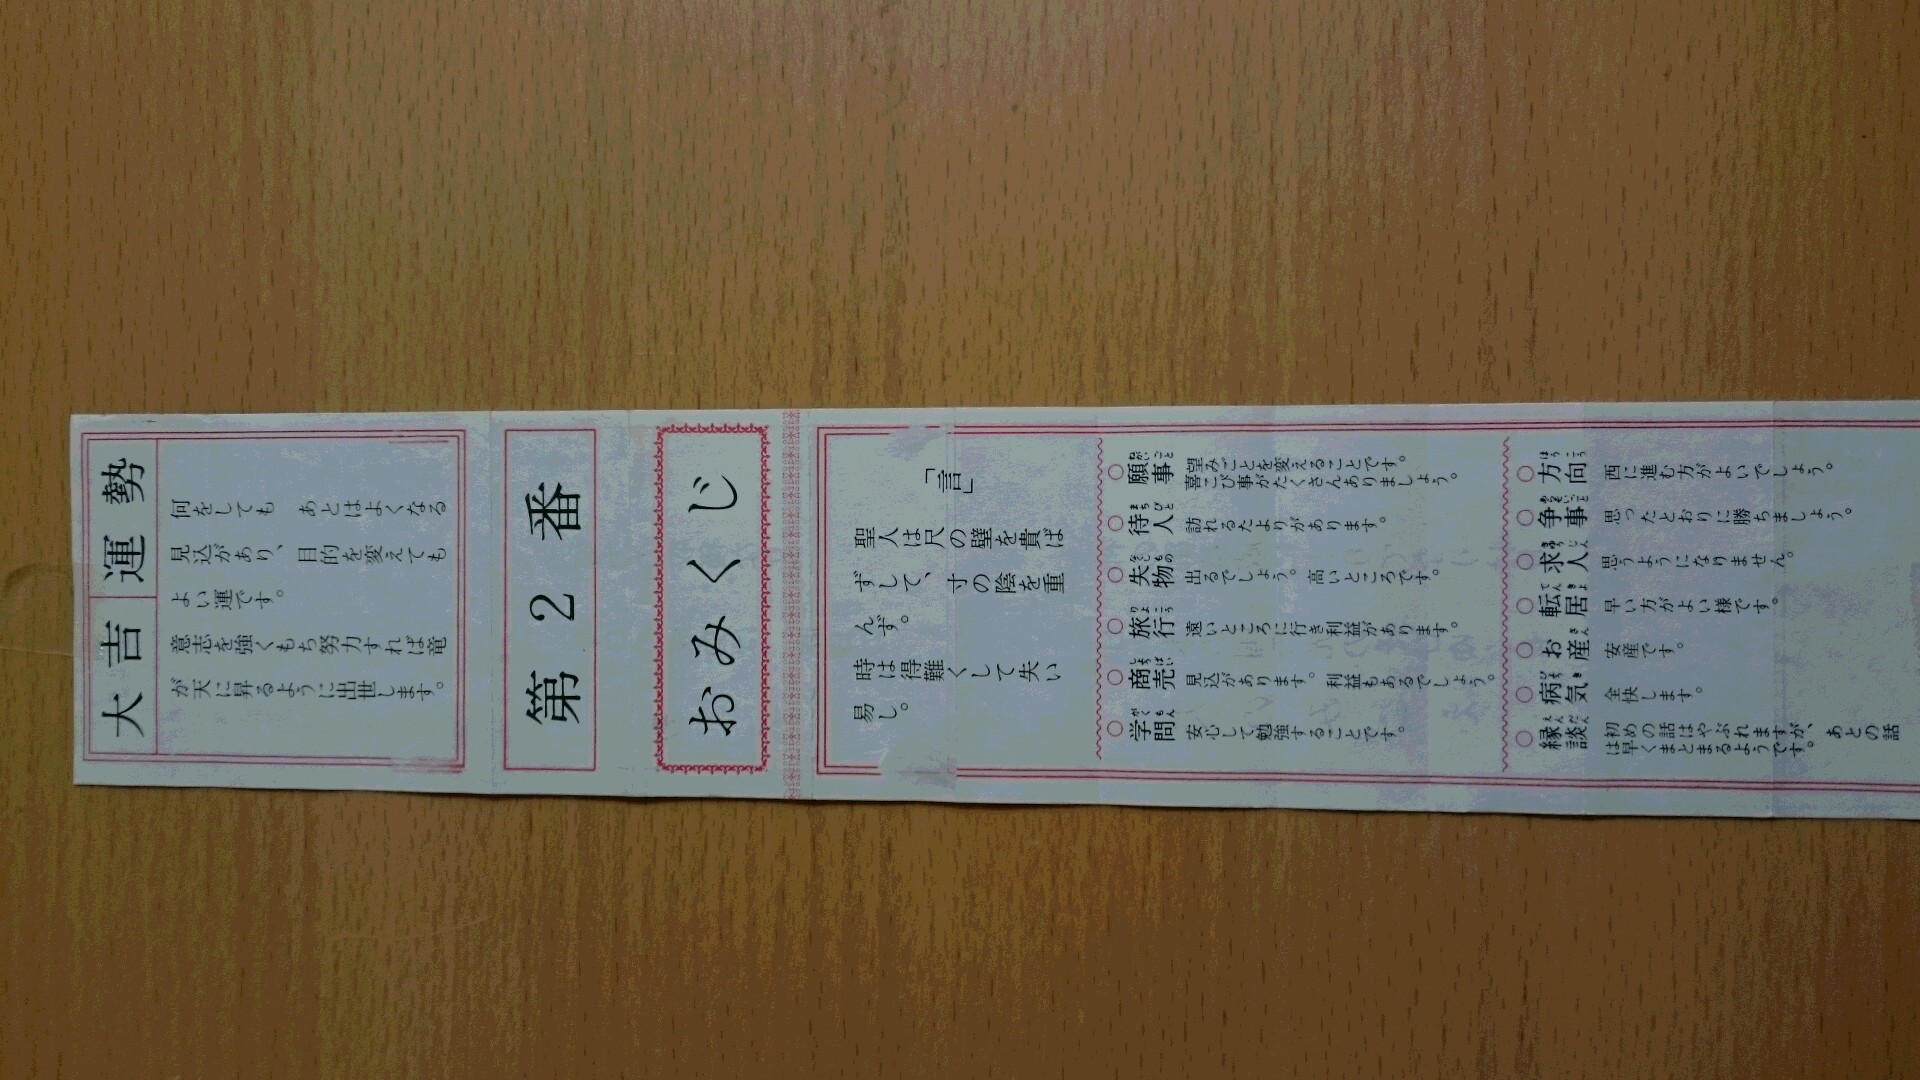 運勢
大吉
何をしても　あとはよくなる
見込があり、目的を変えても
よい運です。
意志を強くもち努力すれば竜
が天に昇るように出世します。
第２番
おみくじ
「言」
聖人は尺の壁を貴ば
ずして、寸の陰を重
んず。
時は得難くして失い
易し。
○願事 ねがいごと
喜望みごとを変えることです。
喜こび事がたくさんありましょう。
○待人 まちびと
訪れるたよりがあります。
○失物 なくしもの
出るでしょう。高いところです。
○旅行 りょこう
遠いところに行き利益があります。
○商売 しょうばい
見込があります。利益もあるでしょう。
○学問 がくもん
安心して勉強することです。
○方向 ほうこう
西に進む方がよいでしょう。
○争事 あらそいごと
思ったとおりに勝ちましょう。
○求人 きゅうじん
思うようになりません。
○転居 てんきょ
早い方がよい様です。
○お産 さん
安産です。
○病気 びょうき
全快します。
○縁談 えんだん
初めの話はやぶれますが、あとの話
は早くまとまるようです。